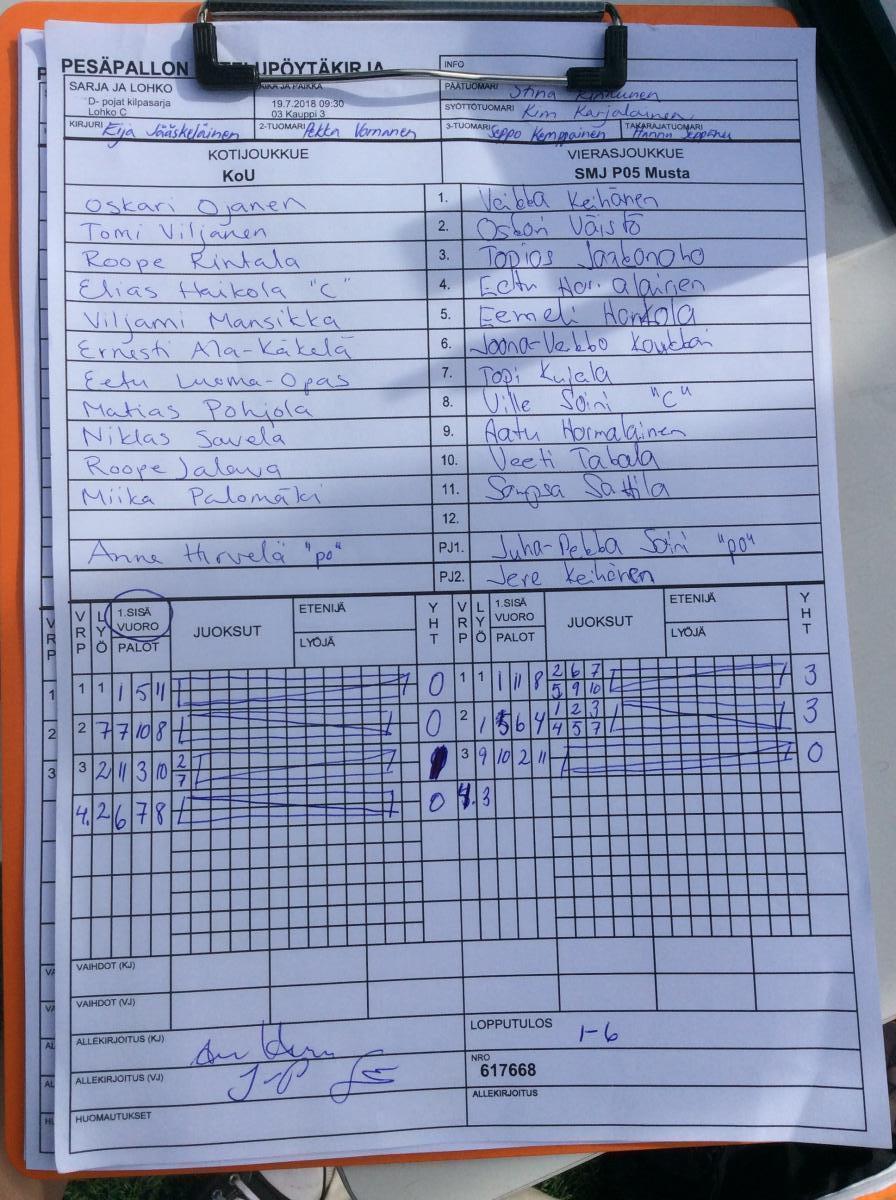 PESÄPALLON
INFO
SARJA JA LOHKO
D- pojat kilpasarja
Lohko C
AIKA JA PAIKKA
19.7.2018 09:30
03 Kauppi 3
PÄÄTUOMARI Stina
SYÖTTÖTUOMARI Kim Karjalainen
KIRJURI Eija Jääskeläinen
2-TUOMARI Pekka
3-TUOMARI Seppo Komppainen
TAKARAJATUOMARI Hannu Seppänen
KOTIJOUKKUE
KoU
VIERASJOUKKUE
SMJ P05 Musta
Oskari Ojanen 1. Veikka Keihänen
Tomi Viljanen 2. Oskari Väistö
Roope Rintala 3. Topias
Elias Haikola "C" 4. Eetu
Viljami Mansikka 5. Eemeli Honkola
Ernesti Ala-Käkelä 6. Joona-Veikko
Eetu Luoma-Opas 7. Topi Kujala
Matias Pohjola 8. Ville Soini "C"
Niklas Savela 9. Aatu Hormalainen
Roope Jalava 10. Veeti Takala
Miika Palomäki 11. Sampsa Sattila
12.
Anne Hirvelä "po" PJ1. Juha-Pekka Soini "po"
PJ2. Jere Keihänen
VRP LYÖ 1.SISÄ VUORO PALOT JUOKSUT ETENIJÄ LYÖJÄ YHT VRP LYÖ 1.SISÄ VUORO PALOT JUOKSUT ETENIJÄ LYÖJÄ YHT
1 1 1 5 11 0 1 1 1 11 8 2 6 7 3
5 9 10
2 7 7 10 8 0 2 1 5 6 4 1 2 3 3
4 5 7
3 2 11 3 10 2 3 9 10 2 11 0
7
4. 2 6 7 8 0 4. 3
VAIHDOT (KJ)
VAIHDOT (VJ)
ALLEKIRJOITUS (KJ)
LOPPUTULOS 1-6
ALLEKIRJOITUS (VJ) J-P
NRO
617668
HUOMAUTUKSET
ALLEKIRJOITUS